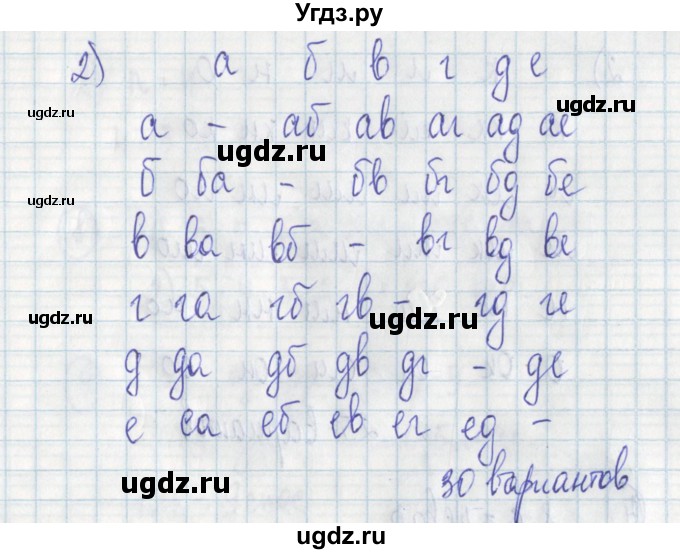 Угдз.ру
2) а б в г д е
а - аб ав аг ад ае
б ба - бв бг бд бе
в ва вб - вг вд ве
г га гб гв - гд ге
д да дб дв дг - де
е еа еб ев ег ед -
30 вариантов
ugdz.ru
ugdz.ru
ugdz.ru
ugdz.ru
ugdz.ru
ugdz.ru
ugdz.ru
ugdz.ru
ugdz.ru
ugdz.ru
ugdz.ru